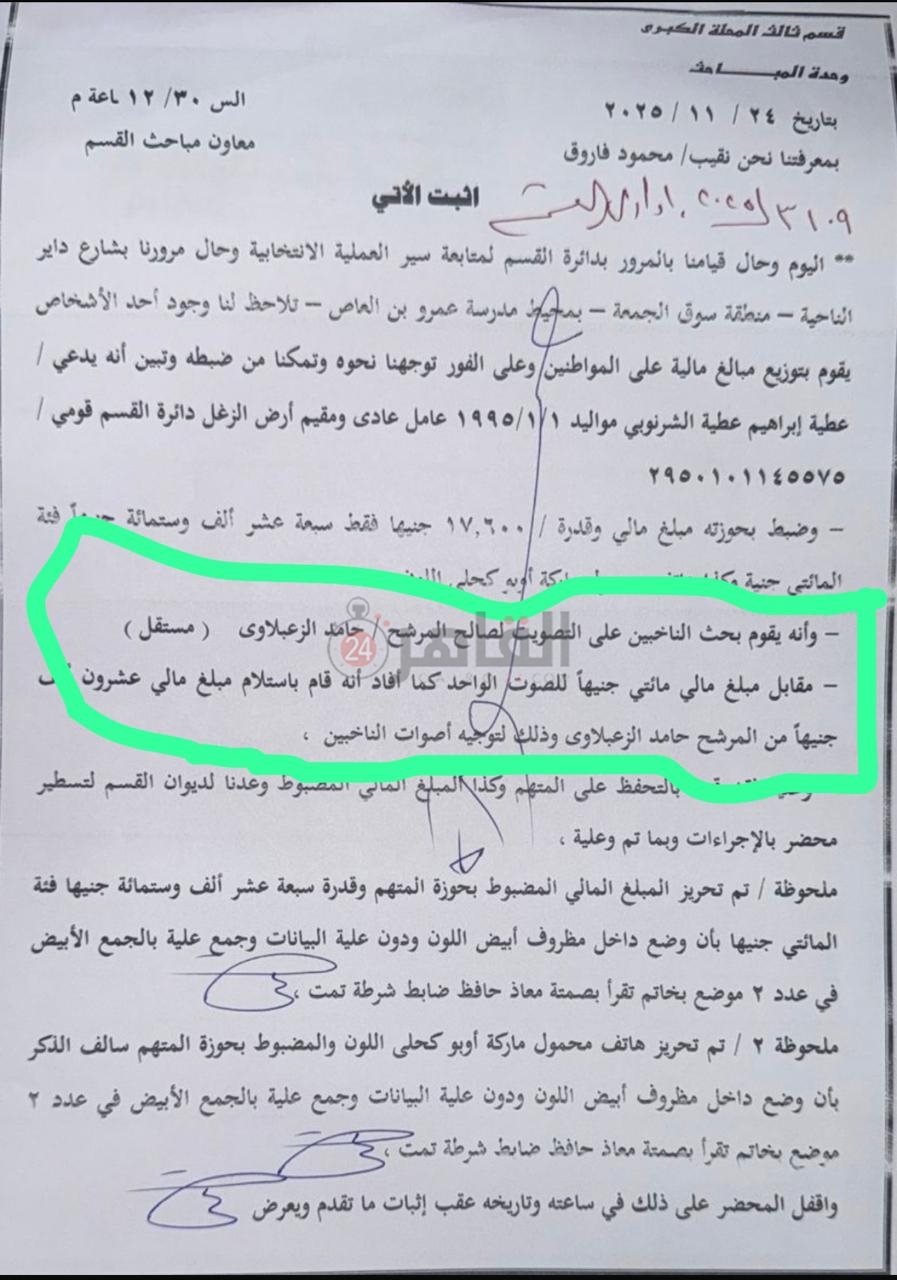 قسم ثالث المحلة الكبرى
وحدة المبـــــاحث
بتاريخ ٢٤ / ١١ / ٢٠٢٥ الس ١٢/٣٠ اعة م
بمعرفتنا نحن نقيب/ محمود فاروق معاون مباحث القسم
اثبت الأتي
٣١٠٩ ٢٠٢٥ اداري
** اليوم وحال قيامنا بالمرور بدائرة القسم لمتابعة سير العملية الانتخابية وحال مرورنا بشارع داير
الناحية – منطقة سوق الجمعة – بمحيط مدرسة عمرو بن العاص – تلاحظ لنا وجود أحد الأشخاص
يقوم بتوزيع مبالغ مالية على المواطنين وعلى الفور توجهنا نحوه وتمكنا من ضبطه وتبين أنه يدعي /
عطية إبراهيم عطية الشرنوبي مواليد ١٩٩٥/١/١ عامل عادى ومقيم أرض الزغل دائرة القسم قومي /
٢٩٥٠١٠١١٤٥٥٧٥
– وضبط بحوزته مبلغ مالي وقدرة / ١٧,٦٠٠ جنيها فقط سبعة عشر ألف وستمائة جنيهاً فئة
المائتي جنية وكذا ماركة أوبو كحلى اللون
– وأنه يقوم بحث الناخبين على التصويت لصالح المرشح / حامد الزعبلاوى ( مستقل )
– مقابل مبلغ مالي مائتي جنيهاً للصوت الواحد كما أفاد أنه قام باستلام مبلغ مالي عشرون ألف
جنيهاً من المرشح حامد الزعبلاوى وذلك لتوجيه أصوات الناخبين ،
بالتحفظ على المتهم وكذا المبلغ المالي المضبوط وعدنا لديوان القسم لتسطير
محضر بالإجراءات وبما تم وعلية ،
ملحوظة / تم تحريز المبلغ المالي المضبوط بحوزة المتهم وقدرة سبعة عشر ألف وستمائة جنيها فئة
المائتي جنيها بأن وضع داخل مظروف أبيض اللون ودون علية البيانات وجمع علية بالجمع الأبيض
في عدد ٢ موضع بخاتم تقرأ بصمتة معاذ حافظ ضابط شرطة تمت ،
ملحوظة ٢ / تم تحريز هاتف محمول ماركة أوبو كحلى اللون والمضبوط بحوزة المتهم سالف الذكر
بأن وضع داخل مظروف أبيض اللون ودون علية البيانات وجمع علية بالجمع الأبيض في عدد ٢
موضع بخاتم تقرأ بصمتة معاذ حافظ ضابط شرطة تمت ،
واقفل المحضر على ذلك في ساعته وتاريخه عقب إثبات ما تقدم ويعرض
القاهرة 24